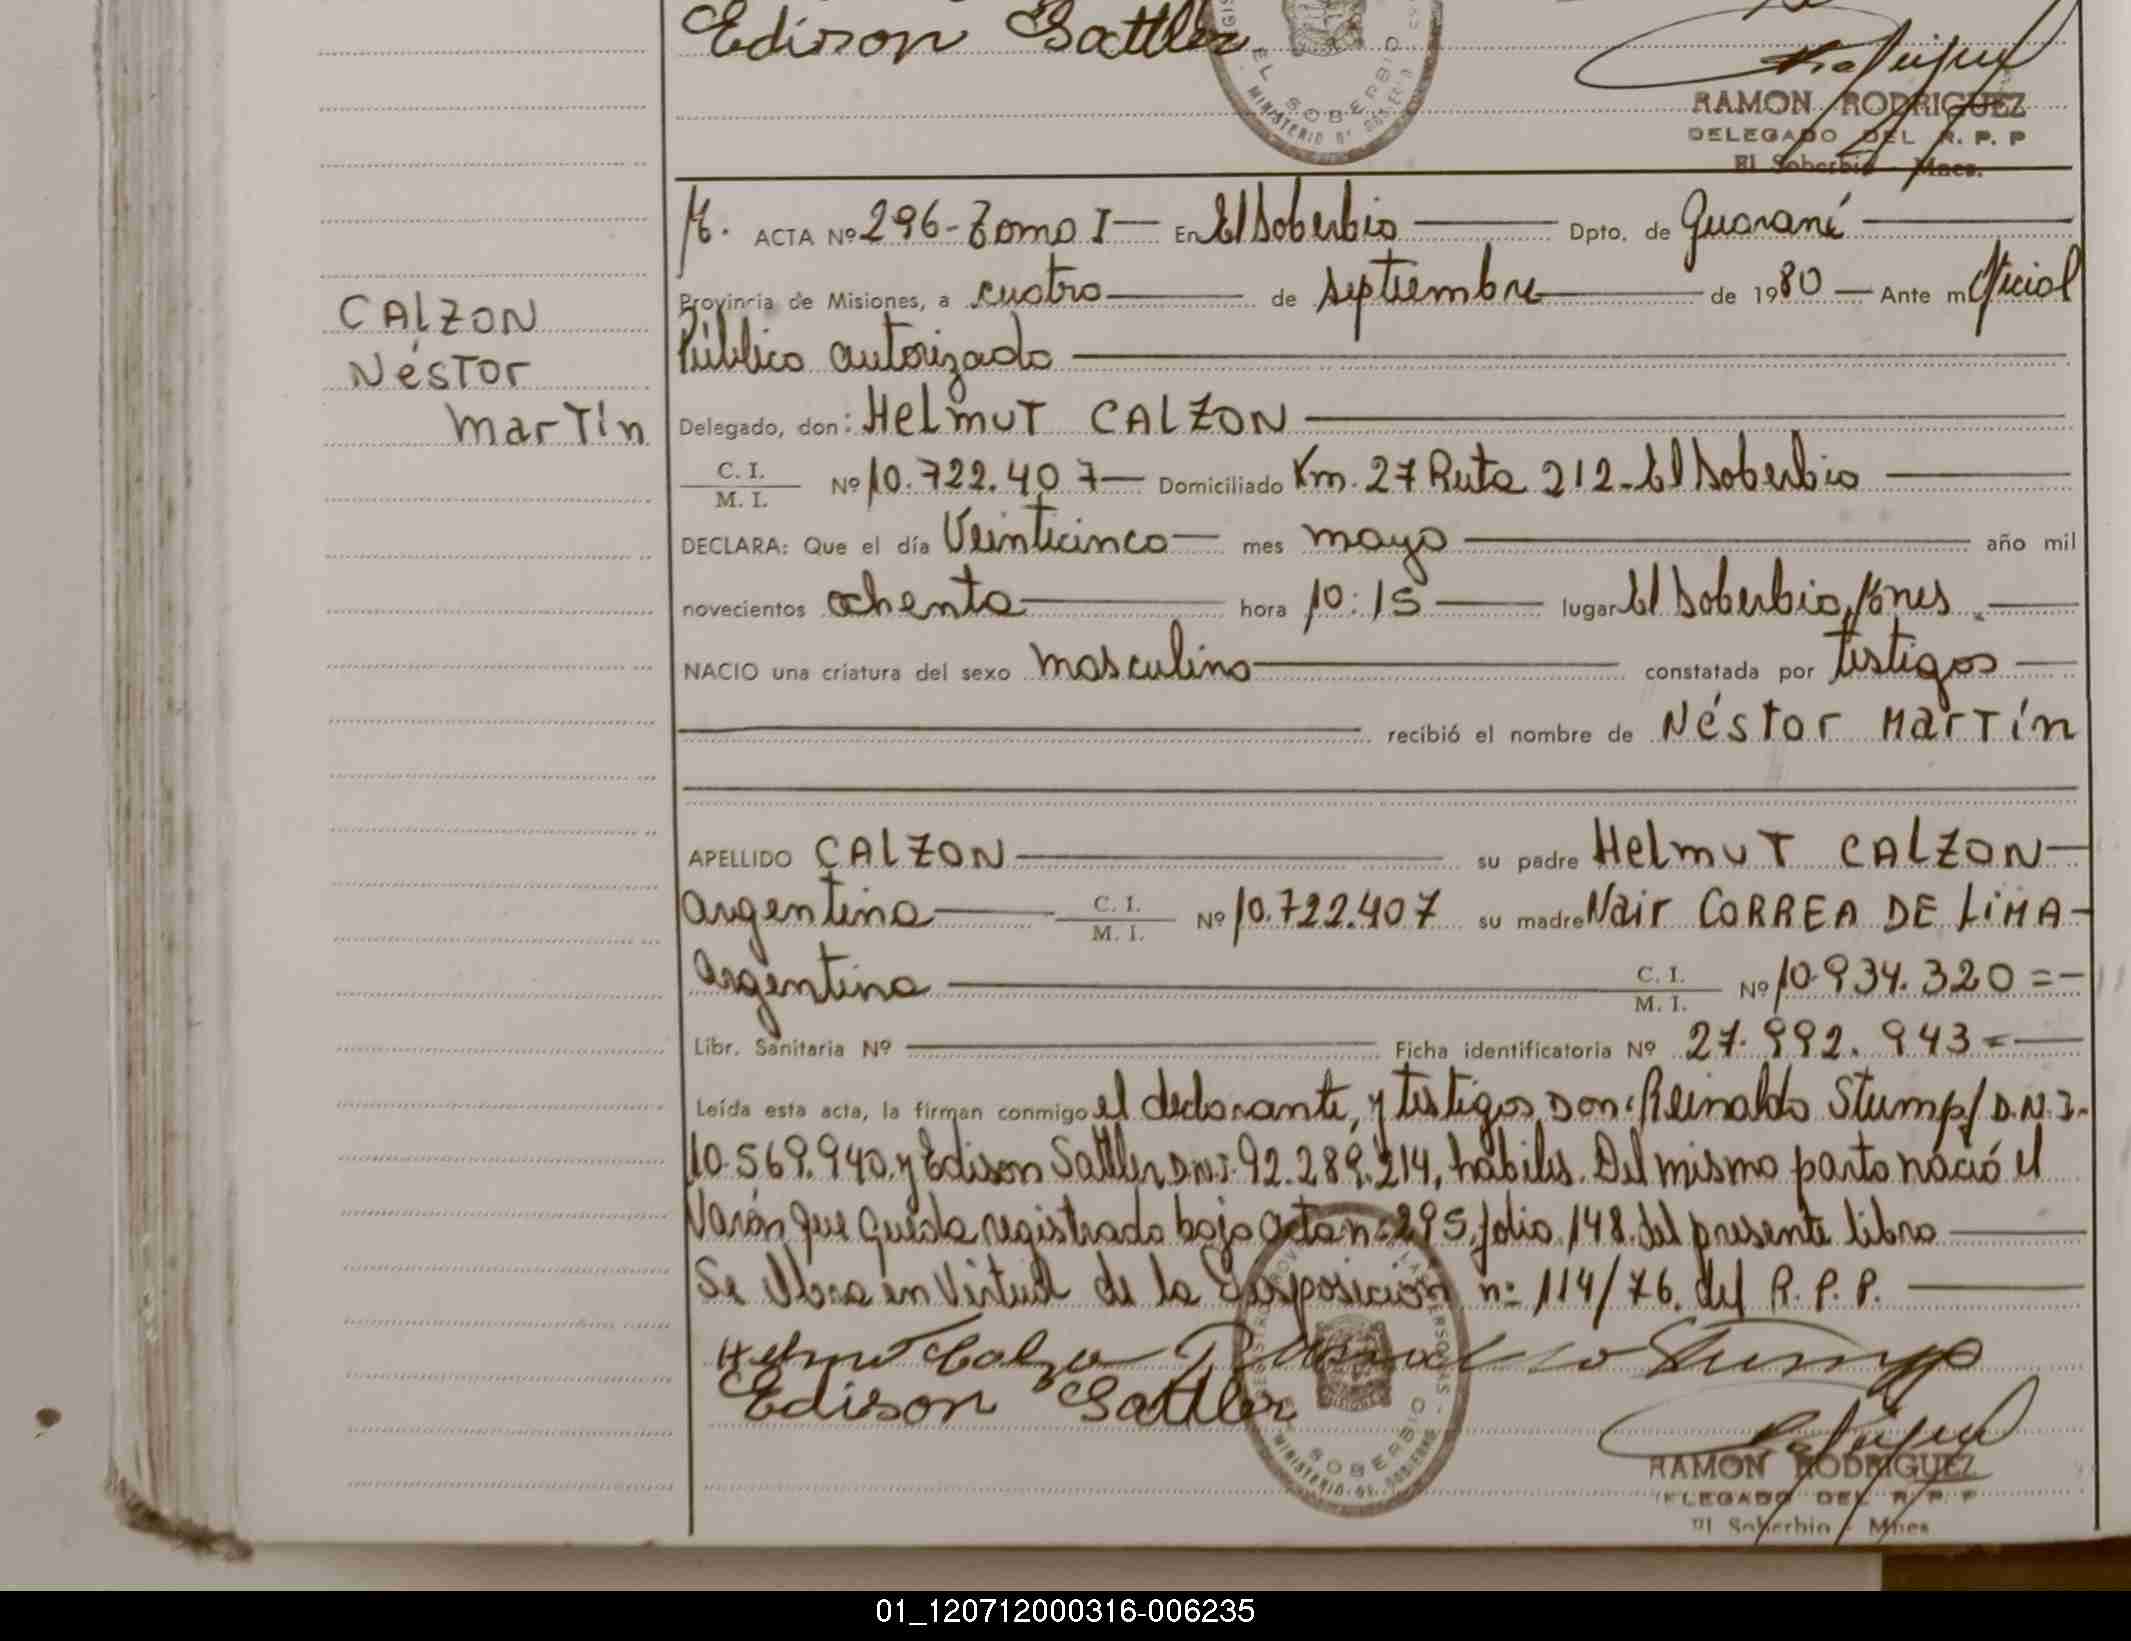 Edison Sattler
EL SOBERBIO
MINISTERIO DE GOBIERNO
RAMON RODRIGUEZ
DELEGADO DEL R. P. P
El Soberbio - Mnes.
M. ACTA Nº 296 - Tomo I — En El Soberbio — Dpto. de Guaraní —
Provincia de Misiones, a cuatro — de septiembre — de 1980 — Ante mí Oficial
Público autorizado —
CALZON
Néstor
Martín
Delegado, don: Helmut CALZON —
C. I. / M. I. Nº 10.722.407 — Domiciliado Km. 27 Ruta 212 - El Soberbio —
DECLARA: Que el día Veinticinco — mes mayo — año mil
novecientos ochenta — hora 10:15 — lugar El Soberbio, Mnes. —
NACIO una criatura del sexo masculino — constatada por testigos —
— recibió el nombre de Néstor Martín
APELLIDO CALZON — su padre Helmut CALZON —
argentino — C. I. / M. I. Nº 10.722.407 su madre Nair CORREA DE LIMA -
argentina — C. I. / M. I. Nº 10.934.320 = -
Libr. Sanitaria Nº — Ficha identificatoria Nº 27.992.943 = —
Leída esta acta, la firman conmigo el declarante, y testigos Don: Reinaldo Stumpf D.N.I.
10.569.940. y Edison Sattler D.N.I. 92.289.214, hábiles. Del mismo parto nació el
Varón que queda registrado bajo acta nº 295, folio 148. del presente libro —
Se labra en Virtud de la Disposición nº 114/76. del R. P. P. —
Helmut Calzon Reinaldo Stumpf
Edison Sattler
EL SOBERBIO
MINISTERIO DE GOBIERNO
RAMON RODRIGUEZ
DELEGADO DEL R. P. P
El Soberbio - Mnes
01_120712000316-006235